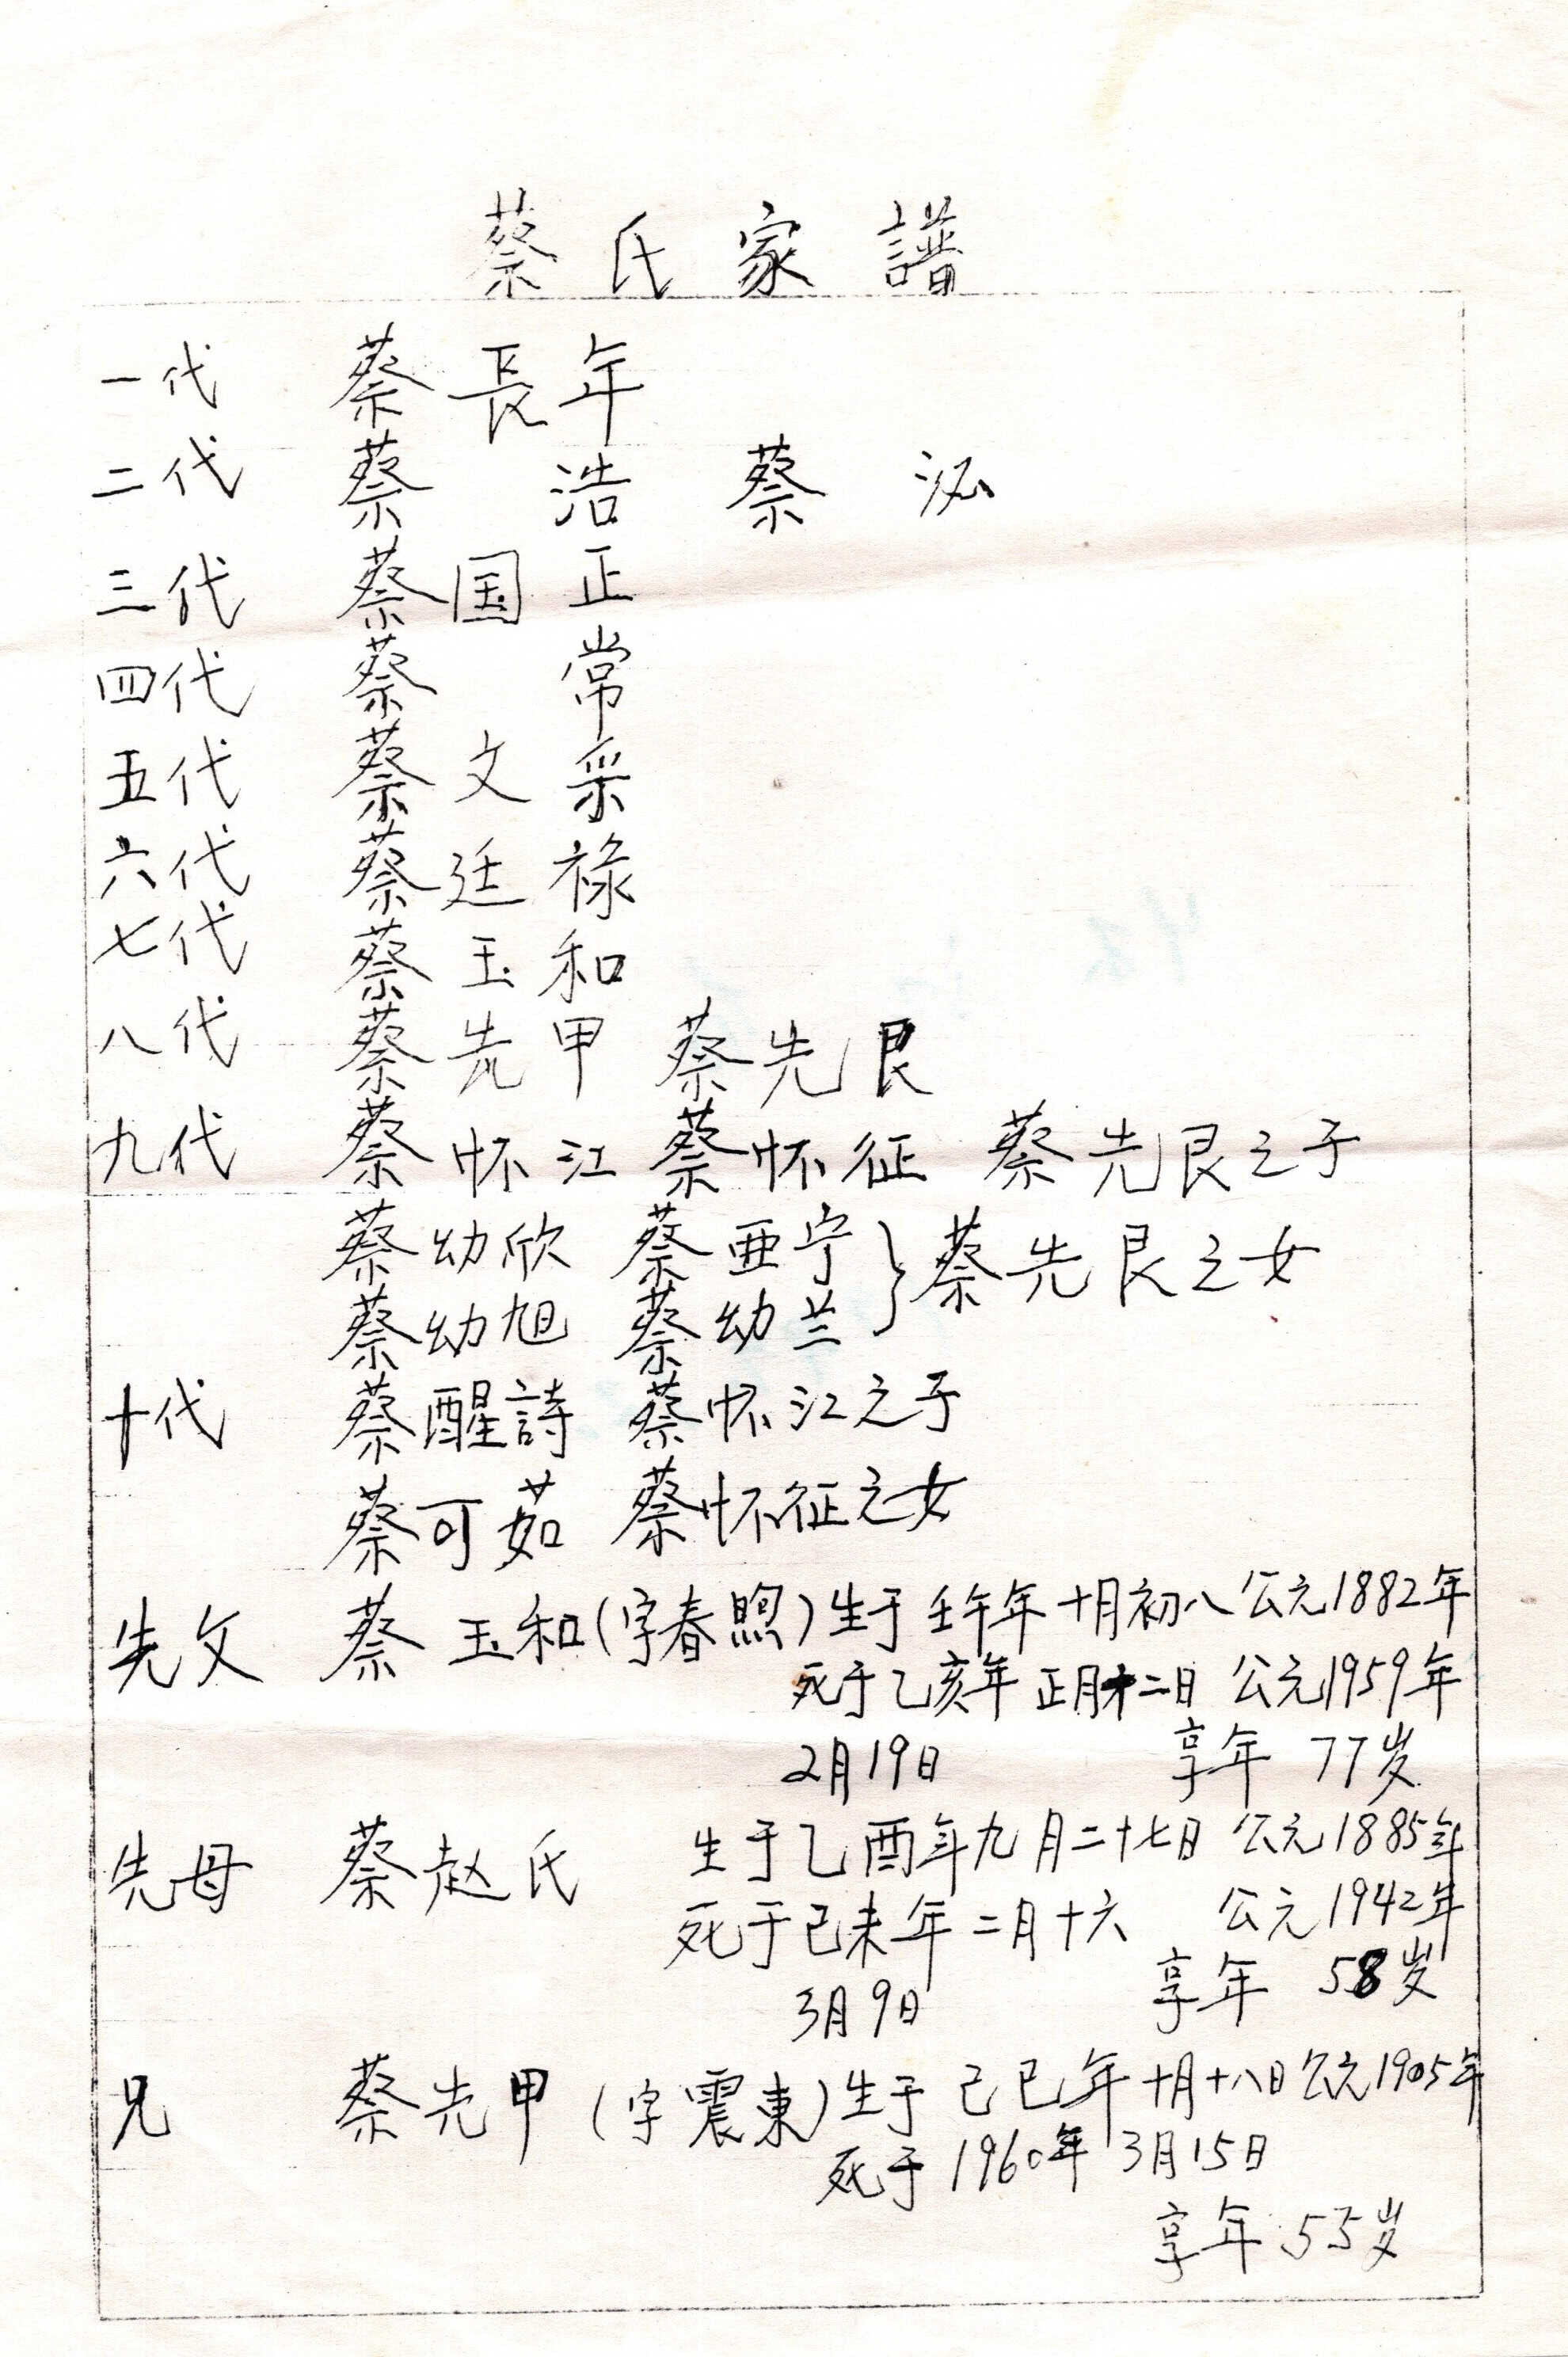 蔡氏家譜
一代 蔡長年
二代 蔡浩 蔡泓
三代 蔡国正
四代 蔡常
五代 蔡文采
六代 蔡廷祿
七代 蔡玉和
八代 蔡先甲 蔡先艮
九代 蔡怀江 蔡怀征 蔡先艮之子
蔡幼欣 蔡亜宁 } 蔡先艮之女
蔡幼旭 蔡幼兰
十代 蔡醒詩 蔡怀江之子
蔡可茹 蔡怀征之女
先父 蔡玉和(字春煦)生于壬午年十月初八公元1882年
死于乙亥年正月十二日 公元1959年
2月19日 享年 77岁
先母 蔡赵氏 生于乙酉年九月二十七日 公元1885年
死于己未年二月十六 公元1942年
3月9日 享年 58岁
兄 蔡先甲(字震東)生于己巳年十月十八日公元1905年
死于1960年3月15日
享年55岁